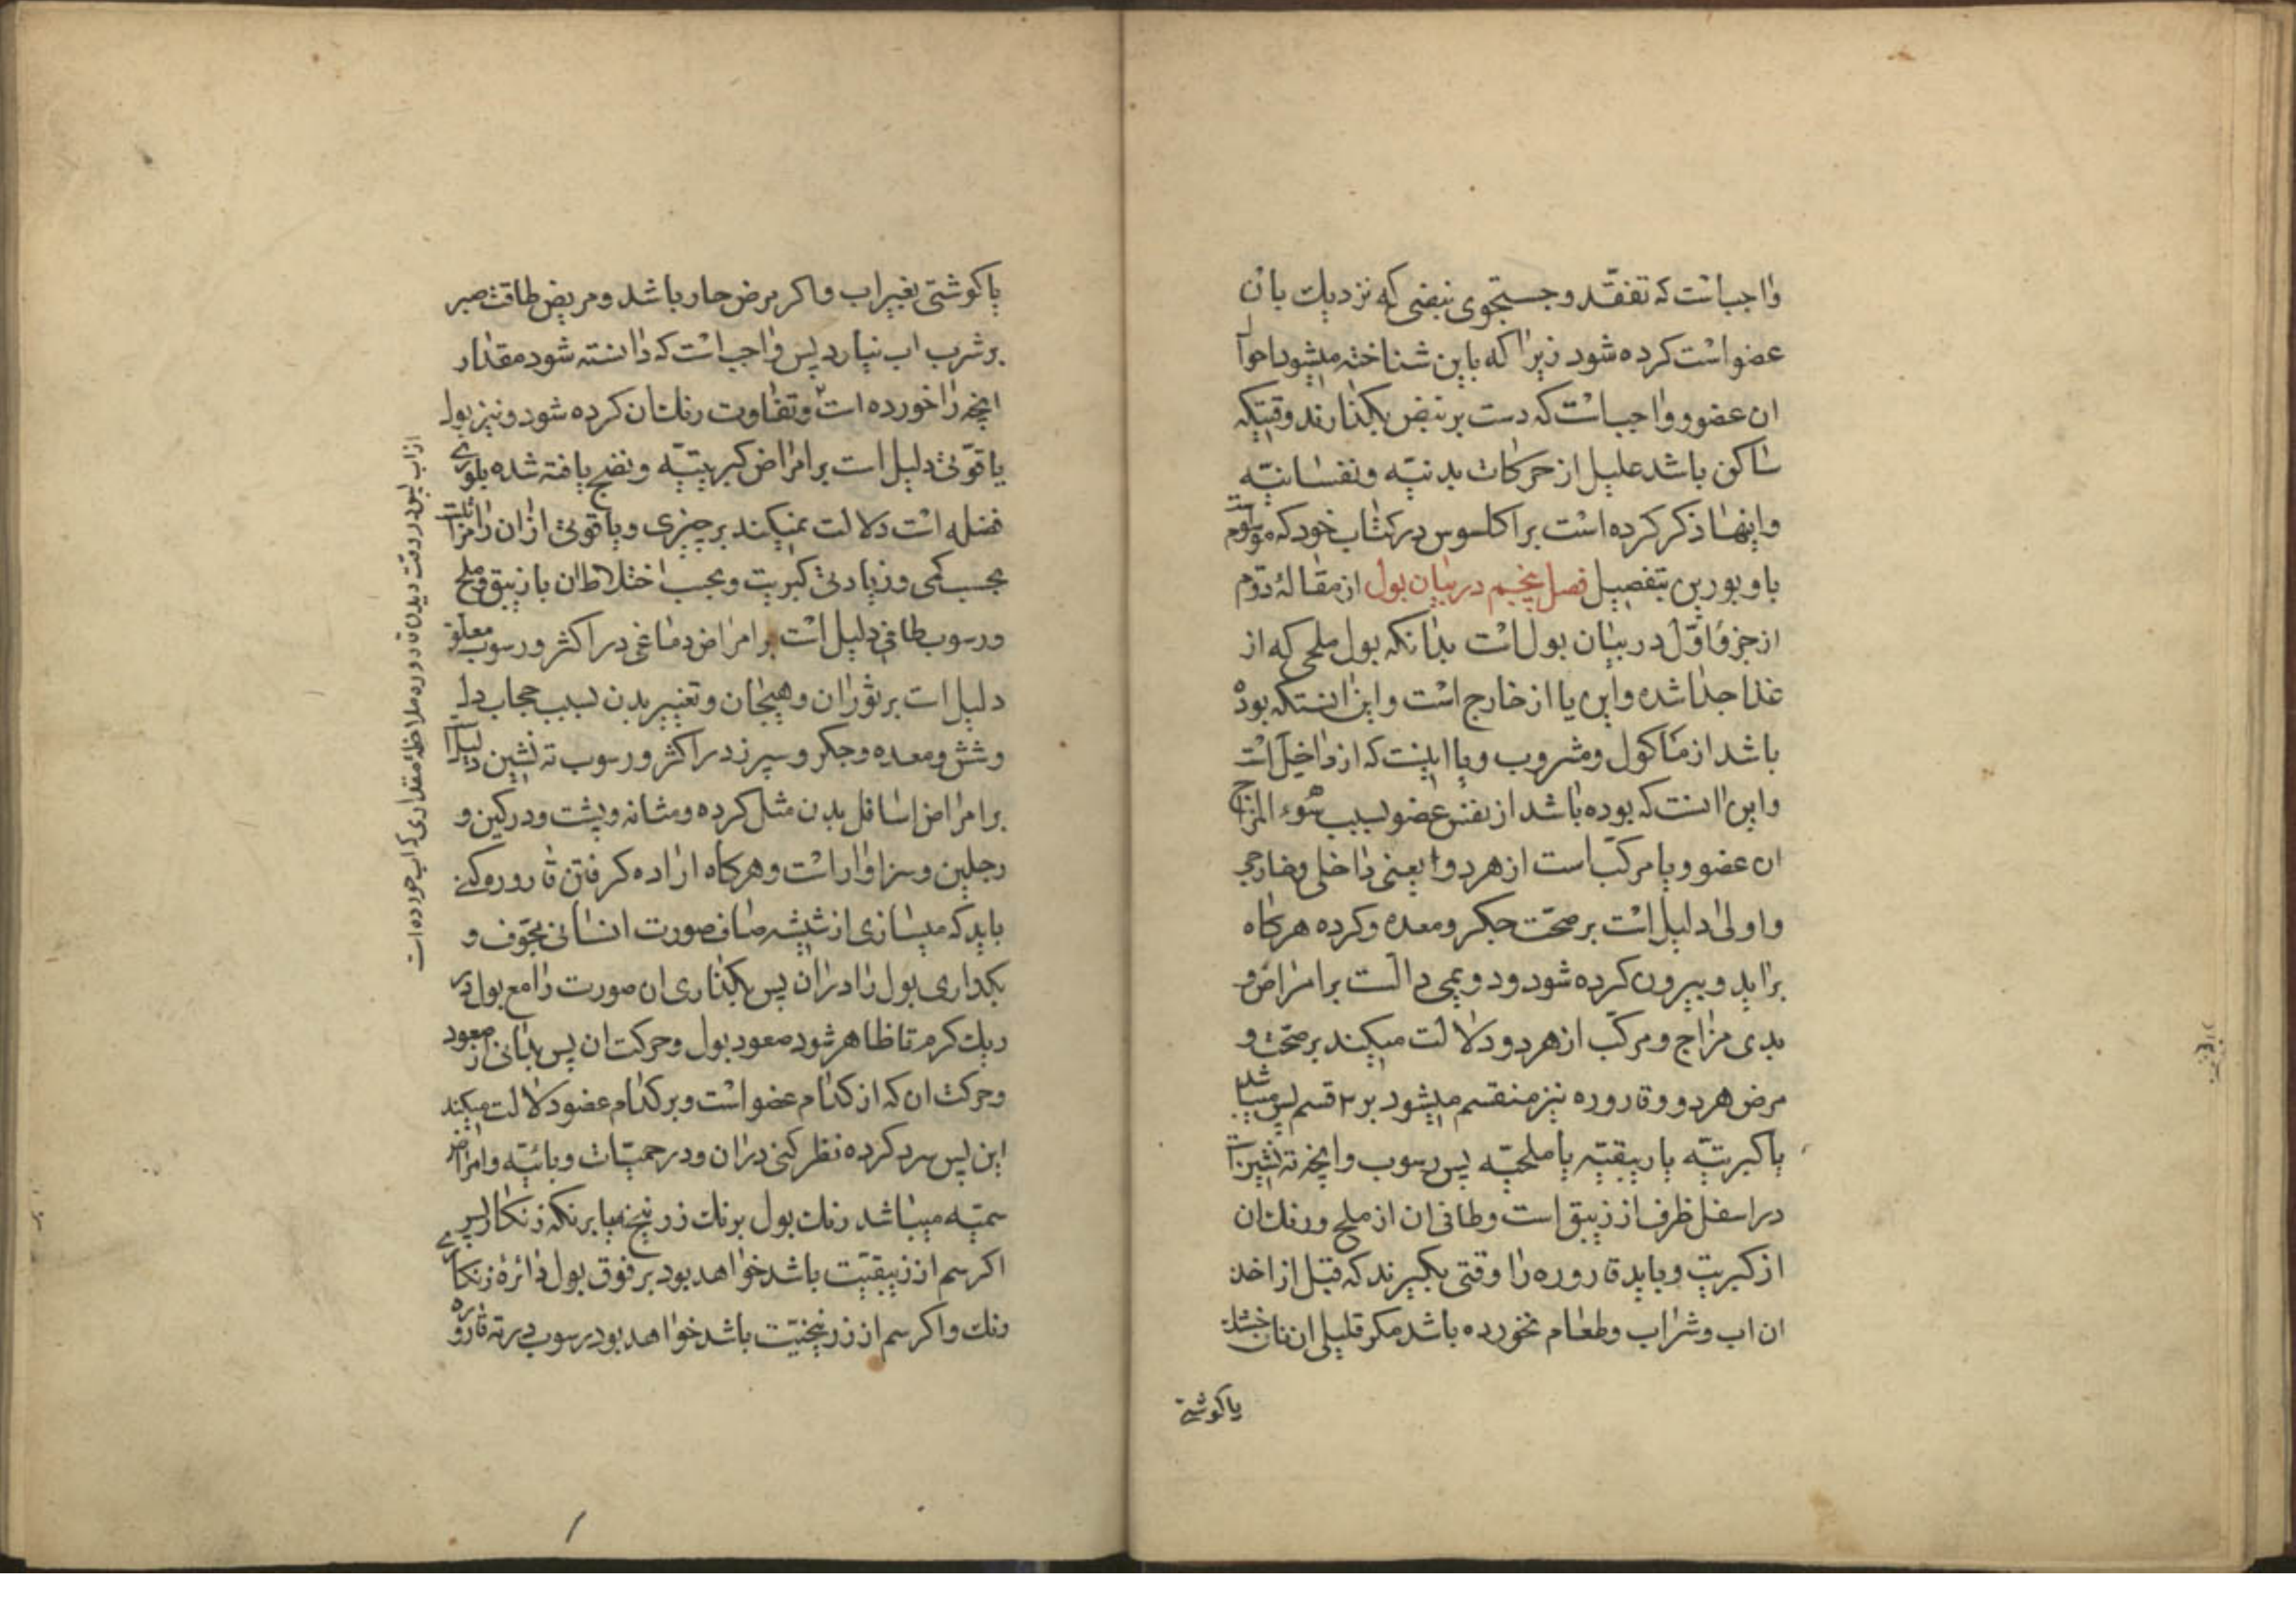 واجبانست که تفقّد و جستجوی نبضی که نزدیك بان
عضو است کرده شود زیرا که باین شناخته میشود احوال
ان عضو و واجبانست که دست بر نبض بکذارند وقتیکه
ساکن باشد علیل از حرکات بدنیّه و نفسانیّه
و اینها ذکر کرده است براکلسوس در کتاب خود که موسوم
باوبورین بتفصیل فصل پنجم در بیان بول از مقالهٔ دوّم
از جزو اوّل در بیان بول است بدانکه بول ملحی که از
غذا جدا شده و این یا از خارج است و این انستکه بوده
باشد از ماکول و مشروب و یا اینست که از داخل است
و این انست که بوده باشد از نفس عضو بسبب سوء المزاج
ان عضو و یا مرکّب است از هر دو یعنی داخلی و خارجی
و اولی دلیل است بر صحّت جکر و معده و کرده هرکاه
براید و بیرون کرده شود و دویمی دالست بر امراض و
بدی مزاج و مرکّب از هر دو دلالت میکند بر صحّت و
مرض هر دو و قاروره نیز منقسم میشود بر ۳ قسم پس میباشد
یا کبریتیّه یا زیبقیّه یا ملحیّه پس رسوب و انچه ته نشین است
در اسفل ظرف از زیبق است و طافی ان از ملح و رنك ان
از کبریت و باید قاروره را وقتی بکیرند که قبل از اخذ
ان اب و شراب و طعام نخورده باشد مکر قلیلی از نان خشك
یا کوشتی
یا کوشتی بغیر اب و اکر مرض حار باشد و مریض طاقت صبر
بر شرب اب نیارد پس واجب است که دانسته شود مقدار
انچه را خورده است و تفاوت رنك ان کرده شود و نیز بول
یاقوتی دلیل است بر امراض کبریتیّه و نضج یافته شده بلوری
فضله است دلالت نمیکند بر چیزی و یاقوتی از ان را مراتب است
بحسب کمی و زیادتی کبریت و بحسب اختلاط ان با زیبق و ملح
و رسوب طافی دلیل است بر امراض دماغی در اکثر و رسوب معلّق
دلیل است بر ثوران و هیجان و تغییر بدن بسبب حجاب دل
و شش و معده و جکر و سپرز در اکثر و رسوب ته نشین دلیل است
بر امراض اسافل بدن مثل کرده و مثانه و پشت و ورکین و
رجلین و سزاوار است و هرکاه اراده کرفتن قاروره کنی
باید که میسازی از شیشه صاف صورت انسانی مجوّف و
بکداری بول را دران پس بکذاری ان صورت را مع بول در
ریك کرم تا ظاهر شود صعود بول و حرکت ان پس بدانی از صعود
و حرکت ان که از کدام عضو است و بر کدام عضو دلالت میکند
این پس سرد کرده نظر کنی دران و در حمیّات وبائیّه و امراض
سمّیّه میباشد رنك بول برنك زرنیخ یا برنکه زنکار پس
اکر سم از زیبقیّت باشد خواهد بود بر فوق بول دائرهٔ زنکاری
رنك و اکر سم از زرنیخیّت باشد خواهد بود رسوب در ته قاروره
از اب پس در وقت دیدن قاروره ملاحظهٔ مقداری که اب خورده است